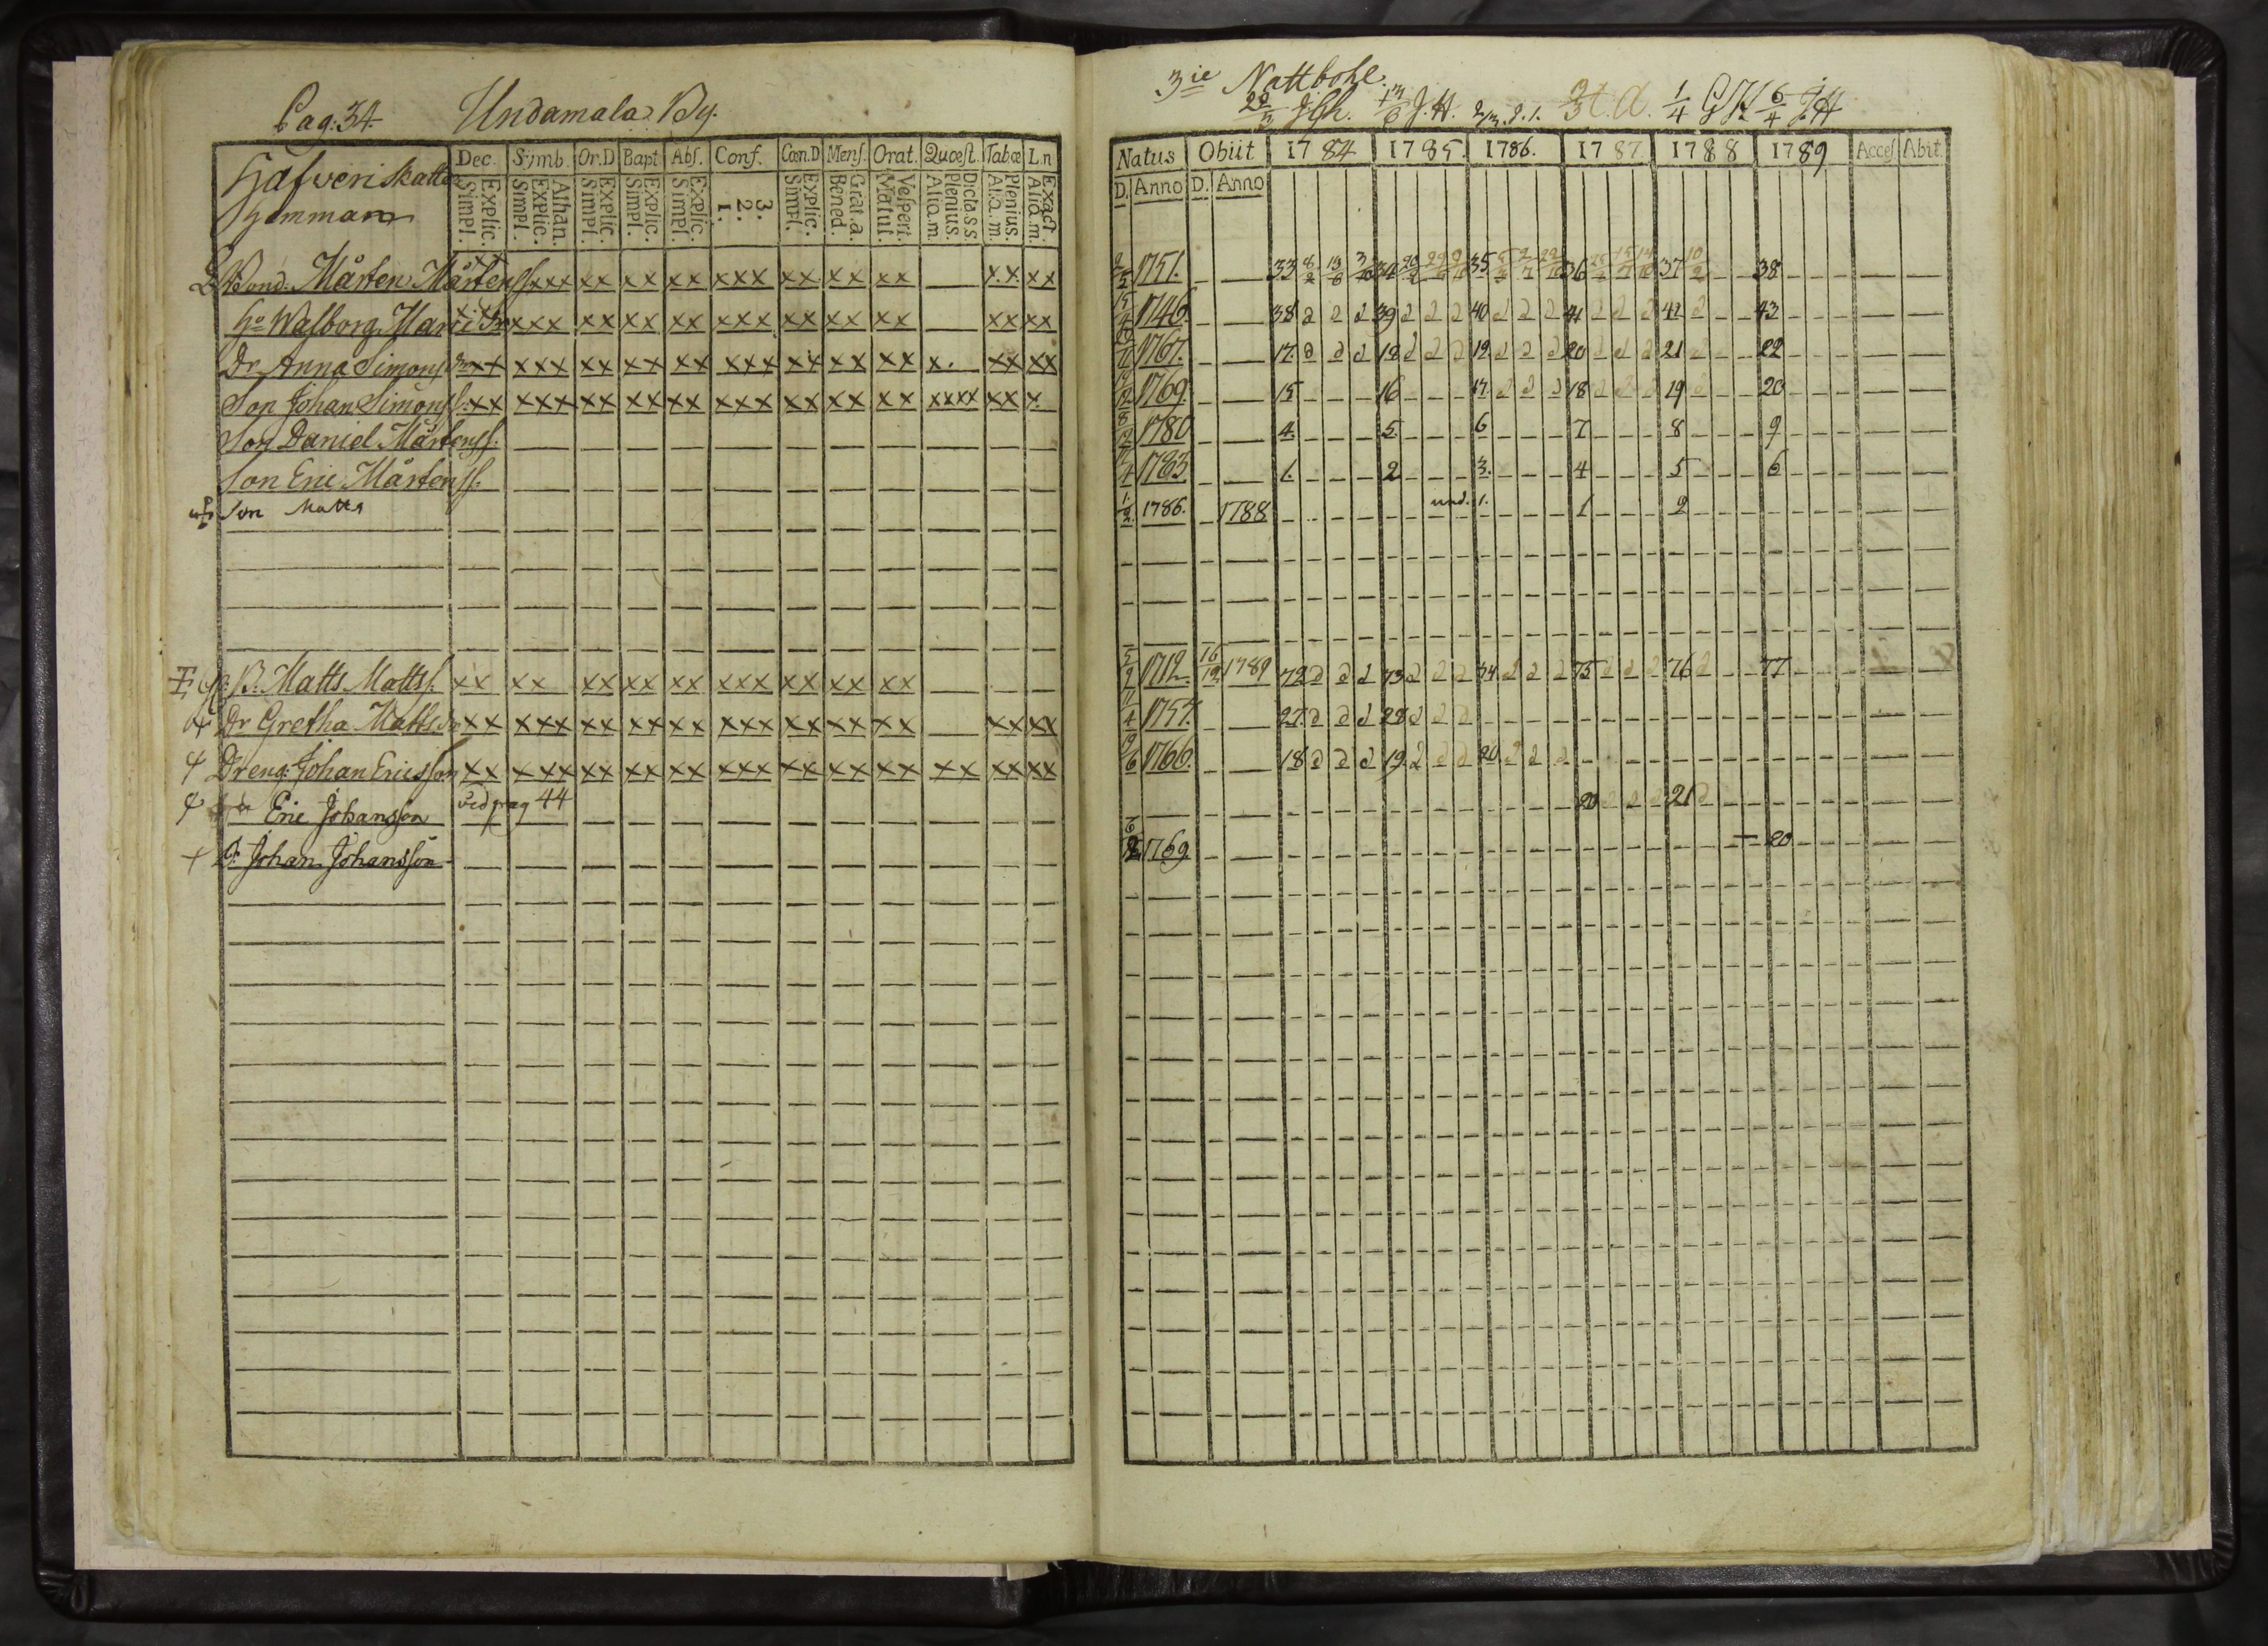 Pag: 34. Undamala By.
Dec. Symb. Or.D Bapt. Abs. Conf. Cœn.D Mens. Orat. Quœst. Tabœ L.n
Explic. Simpl. Athan. Explic. Simpl. Explic. Simpl. Explic. Simpl. Explic. Simpl. 3. 2. 1. Explic. Simpl. Grat.a. Bened. Vesperi. Matut. Dicta.s.s. Plenius. Aliq.m. Plenius. Aliq.m. Exact. Aliq.m.
Hemman
Bond. Mårten Mårtenss. xx xxx xx xx xx xxx xx xx xx xx xx
Ho Walborg xxx xx xx xx xxx xx xx xx xx xx
Dr. Anna Simons xxx xx xx xx xxx xx xx xx x. xx xx
Son Johan Simonss. xx xxx xx xx xx xxx xx xx xx xxxx xx x.
Son Daniel Mårtenss.
Son Eric Mårtenss.
Son Matts
B. Matts Mattss. xx xx xx xx xx xxx xx xx xx
Dr. Gretha Matts xx xxx xx xx xx xxx xx xx xx xx xx
Dreng. Johan Ericsson xx xxx xx xx xx xxx xx xx xx xx xx xx
Eric Johansson vid pag 44
D. Johan Johansson
3ie Nattbohl.
22/3 1/4 6/4 J.H
Natus Obiit 1784 1785. 1786. 1787. 1788 1789 Acces Abit.
D. Anno D. Anno
1751. 33 34 35 36 37 10/2 38
1746. 38 2 2 2 39 2 2 2 40 2 2 2 41 2 2 2 42 2 43
1767. 17. 2 2 2 18 2 2 2 19. 2 2 2 20 2 2 2 21 2 22
1769. 15 16 17. 2 2 2 18 2 2 2 19 2 20
1780 4. 5. 6 7 8 9
1783. 1. 2 3. 4 5 6
1/2 1786. 1788 und. 1. 1 2
1712 16/12 1789 72 2 2 2 73 2 2 2 74 2 2 2 75 2 2 2 76 2 77
1757. 27 2 2 2 28 2 2 2
1766. 18 2 2 2 19. 2 2 2 20 2 2 2
20 2 2 2 21 2
1769 20